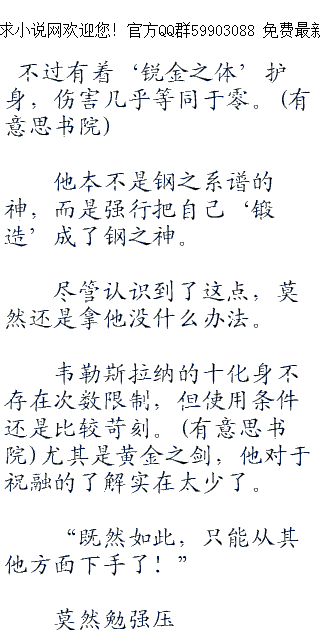 求小说网欢迎您！官方QQ群59903088 免费最新
不过有着‘锐金之体’护
身，伤害几乎等同于零。(有
意思书院)
他本不是钢之系谱的
神，而是强行把自己‘锻
造’成了钢之神。
尽管认识到了这点，莫
然还是拿他没什么办法。
韦勒斯拉纳的十化身不
存在次数限制，但使用条件
还是比较苛刻。(有意思书
院)尤其是黄金之剑，他对于
祝融的了解实在太少了。
“既然如此，只能从其
他方面下手了！”
莫然勉强压